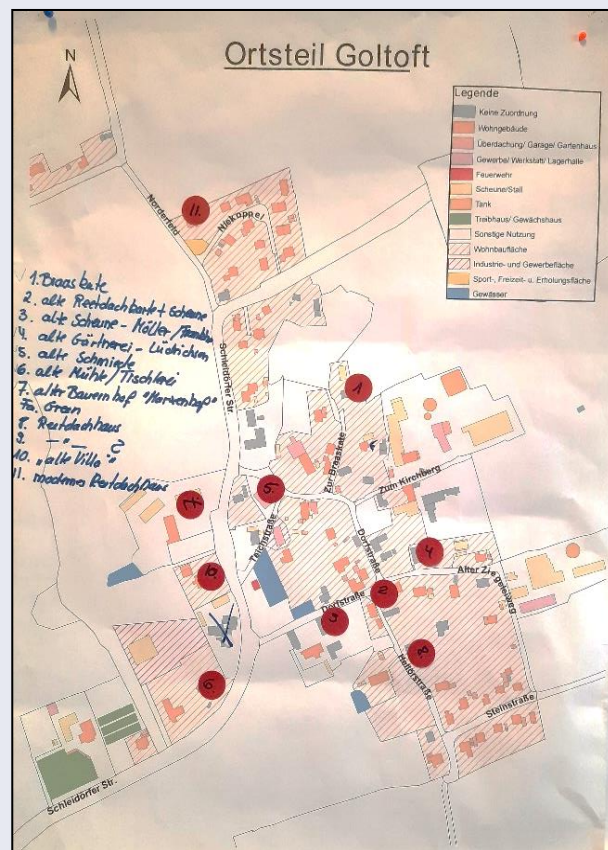 Ortsteil Goltoft
N
Legende
Keine Zuordnung
Wohngebäude
Überdachung/ Garage/ Gartenhaus
Gewerbe/ Werkstatt/ Lagerhalle
Feuerwehr
Scheune/Stall
Tank
Treibhaus/ Gewächshaus
Sonstige Nutzung
Wohnbaufläche
Industrie- und Gewerbefläche
Sport-, Freizeit- u. Erholungsfläche
Gewässer
Norderfeld
11.
Niekoppel
1. Braaskate
2. alte Reetdachkate + Scheune
3. alte Scheune - Möller/
4. alte Gärtnerei -
5. alte Schmiede
6. alte Mühle/Tischlerei
7. alter Bauernhof "
8. Reetdachhaus
9. -"- ?
10. "alte Villa"
11. modernes Reetdachhaus
Schleidörfer Str.
1
Zur Braaskate
Zum Kirchberg
5.
7.
Teichstraße
Dorfstraße
4
Alter Ziegeleiweg
10.
2
Dorfstraße
Hellörstraße
6
Steinstraße
Schleidörfer Str.